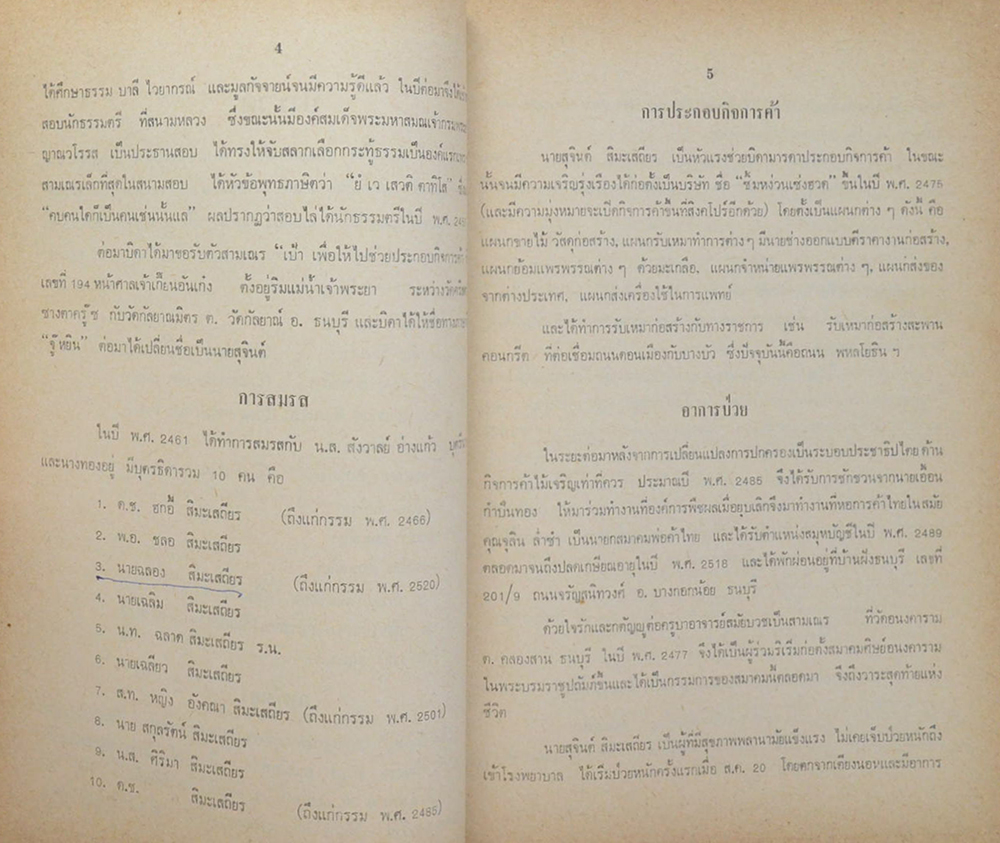 4
ได้ศึกษาธรรม บาลี ไวยากรณ์ และมูลกัจจายน์จนมีความรู้ดีแล้ว ในปีต่อมาจึงได้
สอบนักธรรมตรี ที่สนามหลวง ซึ่งขณะนั้นมีองค์สมเด็จพระมหาสมณเจ้ากรมพระ
ญาณวโรรส เป็นประธานสอบ ได้ทรงให้จับสลากเลือกกระทู้ธรรมเป็นองค์แรก
สามเณรเล็กที่สุดในสนามสอบ ได้หัวข้อพุทธภาษิตว่า "ยํ เว เสวติ ตาทิโส"
"คบคนใดก็เป็นคนเช่นนั้นแล" ผลปรากฏว่าสอบไล่ได้นักธรรมตรีในปี พ.ศ.
ต่อมาบิดาได้มาขอรับตัวสามเณร "เป๋า เพื่อให้ไปช่วยประกอบกิจการค้า
เลขที่ 194 หน้าศาลเจ้าเกียนอันเก๋ง ตั้งอยู่ริมแม่น้ำเจ้าพระยา ระหว่างวัด
ซางตาครู๊ซ กับวัดกัลยาณมิตร ต. วัดกัลยาณ์ อ. ธนบุรี และบิดาได้ให้ชื่อทาง
"จู๊หยิน" ต่อมาได้เปลี่ยนชื่อเป็นนายสุจินต์
การสมรส
ในปี พ.ศ. 2461 ได้ทำการสมรสกับ น.ส. สังวาลย์ อ่างแก้ว
และนางทองอยู่ มีบุตรธิดารวม 10 คน คือ
1. ด.ช. ฮกอี้ สิมะเสถียร (ถึงแก่กรรม พ.ศ. 2466)
2. พ.อ. ชลอ สิมะเสถียร
3. นายฉลอง สิมะเสถียร (ถึงแก่กรรม พ.ศ. 2520)
4. นายเฉลิม สิมะเสถียร
5. น.ท. ฉลาด สิมะเสถียร ร.น.
6. นายเฉลียว สิมะเสถียร
7. ส.ท. หญิง อังคณา สิมะเสถียร (ถึงแก่กรรม พ.ศ. 2501)
8. นาย สกุลรัตน์ สิมะเสถียร
9. น.ส. ศิริมา สิมะเสถียร
10. ด.ช. สิมะเสถียร (ถึงแก่กรรม พ.ศ. 2485)
5
การประกอบกิจการค้า
นายสุจินต์ สิมะเสถียร เป็นหัวแรงช่วยบิดามารดาประกอบกิจการค้า ในขณะ
นั้นจนมีความเจริญรุ่งเรืองได้ก่อตั้งเป็นบริษัท ชื่อ "ซิ้มหง่วนเซ่งฮวด" ขึ้นในปี พ.ศ. 2475
(และมีความมุ่งหมายจะเปิดกิจการค้าขึ้นที่สิงคโปร์อีกด้วย) โดยตั้งเป็นแผนกต่าง ๆ ดังนี้ คือ
แผนกขายไม้ วัสดุก่อสร้าง, แผนกรับเหมาทำการต่างๆ มีนายช่างออกแบบตีราคางานก่อสร้าง,
แผนกย้อมแพรพรรณต่าง ๆ ด้วยมะเกลือ, แผนกจำหน่ายแพรพรรณต่าง ๆ, แผนกส่งของ
จากต่างประเทศ, แผนกส่งเครื่องใช้ในการแพทย์
และได้ทำการรับเหมาก่อสร้างกับทางราชการ เช่น รับเหมาก่อสร้างสะพาน
คอนกรีต ที่ต่อเชื่อมถนนดอนเมืองกับบางบัว ซึ่งปัจจุบันนี้คือถนน พหลโยธิน ฯ
อาการป่วย
ในระยะต่อมาหลังจากการเปลี่ยนแปลงการปกครองเป็นระบอบประชาธิปไตย ด้าน
กิจการค้าไม้เจริญเท่าที่ควร ประมาณปี พ.ศ. 2485 จึงได้รับการชักชวนจากนายเอื้อน
กำปั่นทอง ให้มาร่วมทำงานที่องค์การพืชผลเมื่อยุบเลิกจึงมาทำงานที่หอการค้าไทยในสมัย
คุณจุลิน ล่ำซำ เป็นนายกสมาคมพ่อค้าไทย และได้รับตำแหน่งสมุหบัญชีในปี พ.ศ. 2489
ตลอดมาจนถึงปลดเกษียณอายุในปี พ.ศ. 2518 และได้พักผ่อนอยู่ที่บ้านฝั่งธนบุรี เลขที่
201/9 ถนนจรัญสนิทวงศ์ อ. บางกอกน้อย ธนบุรี
ด้วยใจรักและกตัญญูต่อครูบาอาจารย์สมัยบวชเป็นสามเณร ที่วัดอนงคาราม
ต. คลองสาน ธนบุรี ในปี พ.ศ. 2477 จึงได้เป็นผู้ร่วมริเริ่มก่อตั้งสมาคมศิษย์อนงคาราม
ในพระบรมราชูปถัมภ์ขึ้นและได้เป็นกรรมการของสมาคมนี้ตลอดมา จึงถึงวาระสุดท้ายแห่ง
ชีวิต
นายสุจินต์ สิมะเสถียร เป็นผู้ที่มีสุขภาพพลานามัยแข็งแรง ไม่เคยเจ็บป่วยหนักถึง
เข้าโรงพยาบาล ได้เริ่มป่วยหนักครั้งแรกเมื่อ ส.ค. 20 โดยตกจากเตียงนอนและมีอาการ